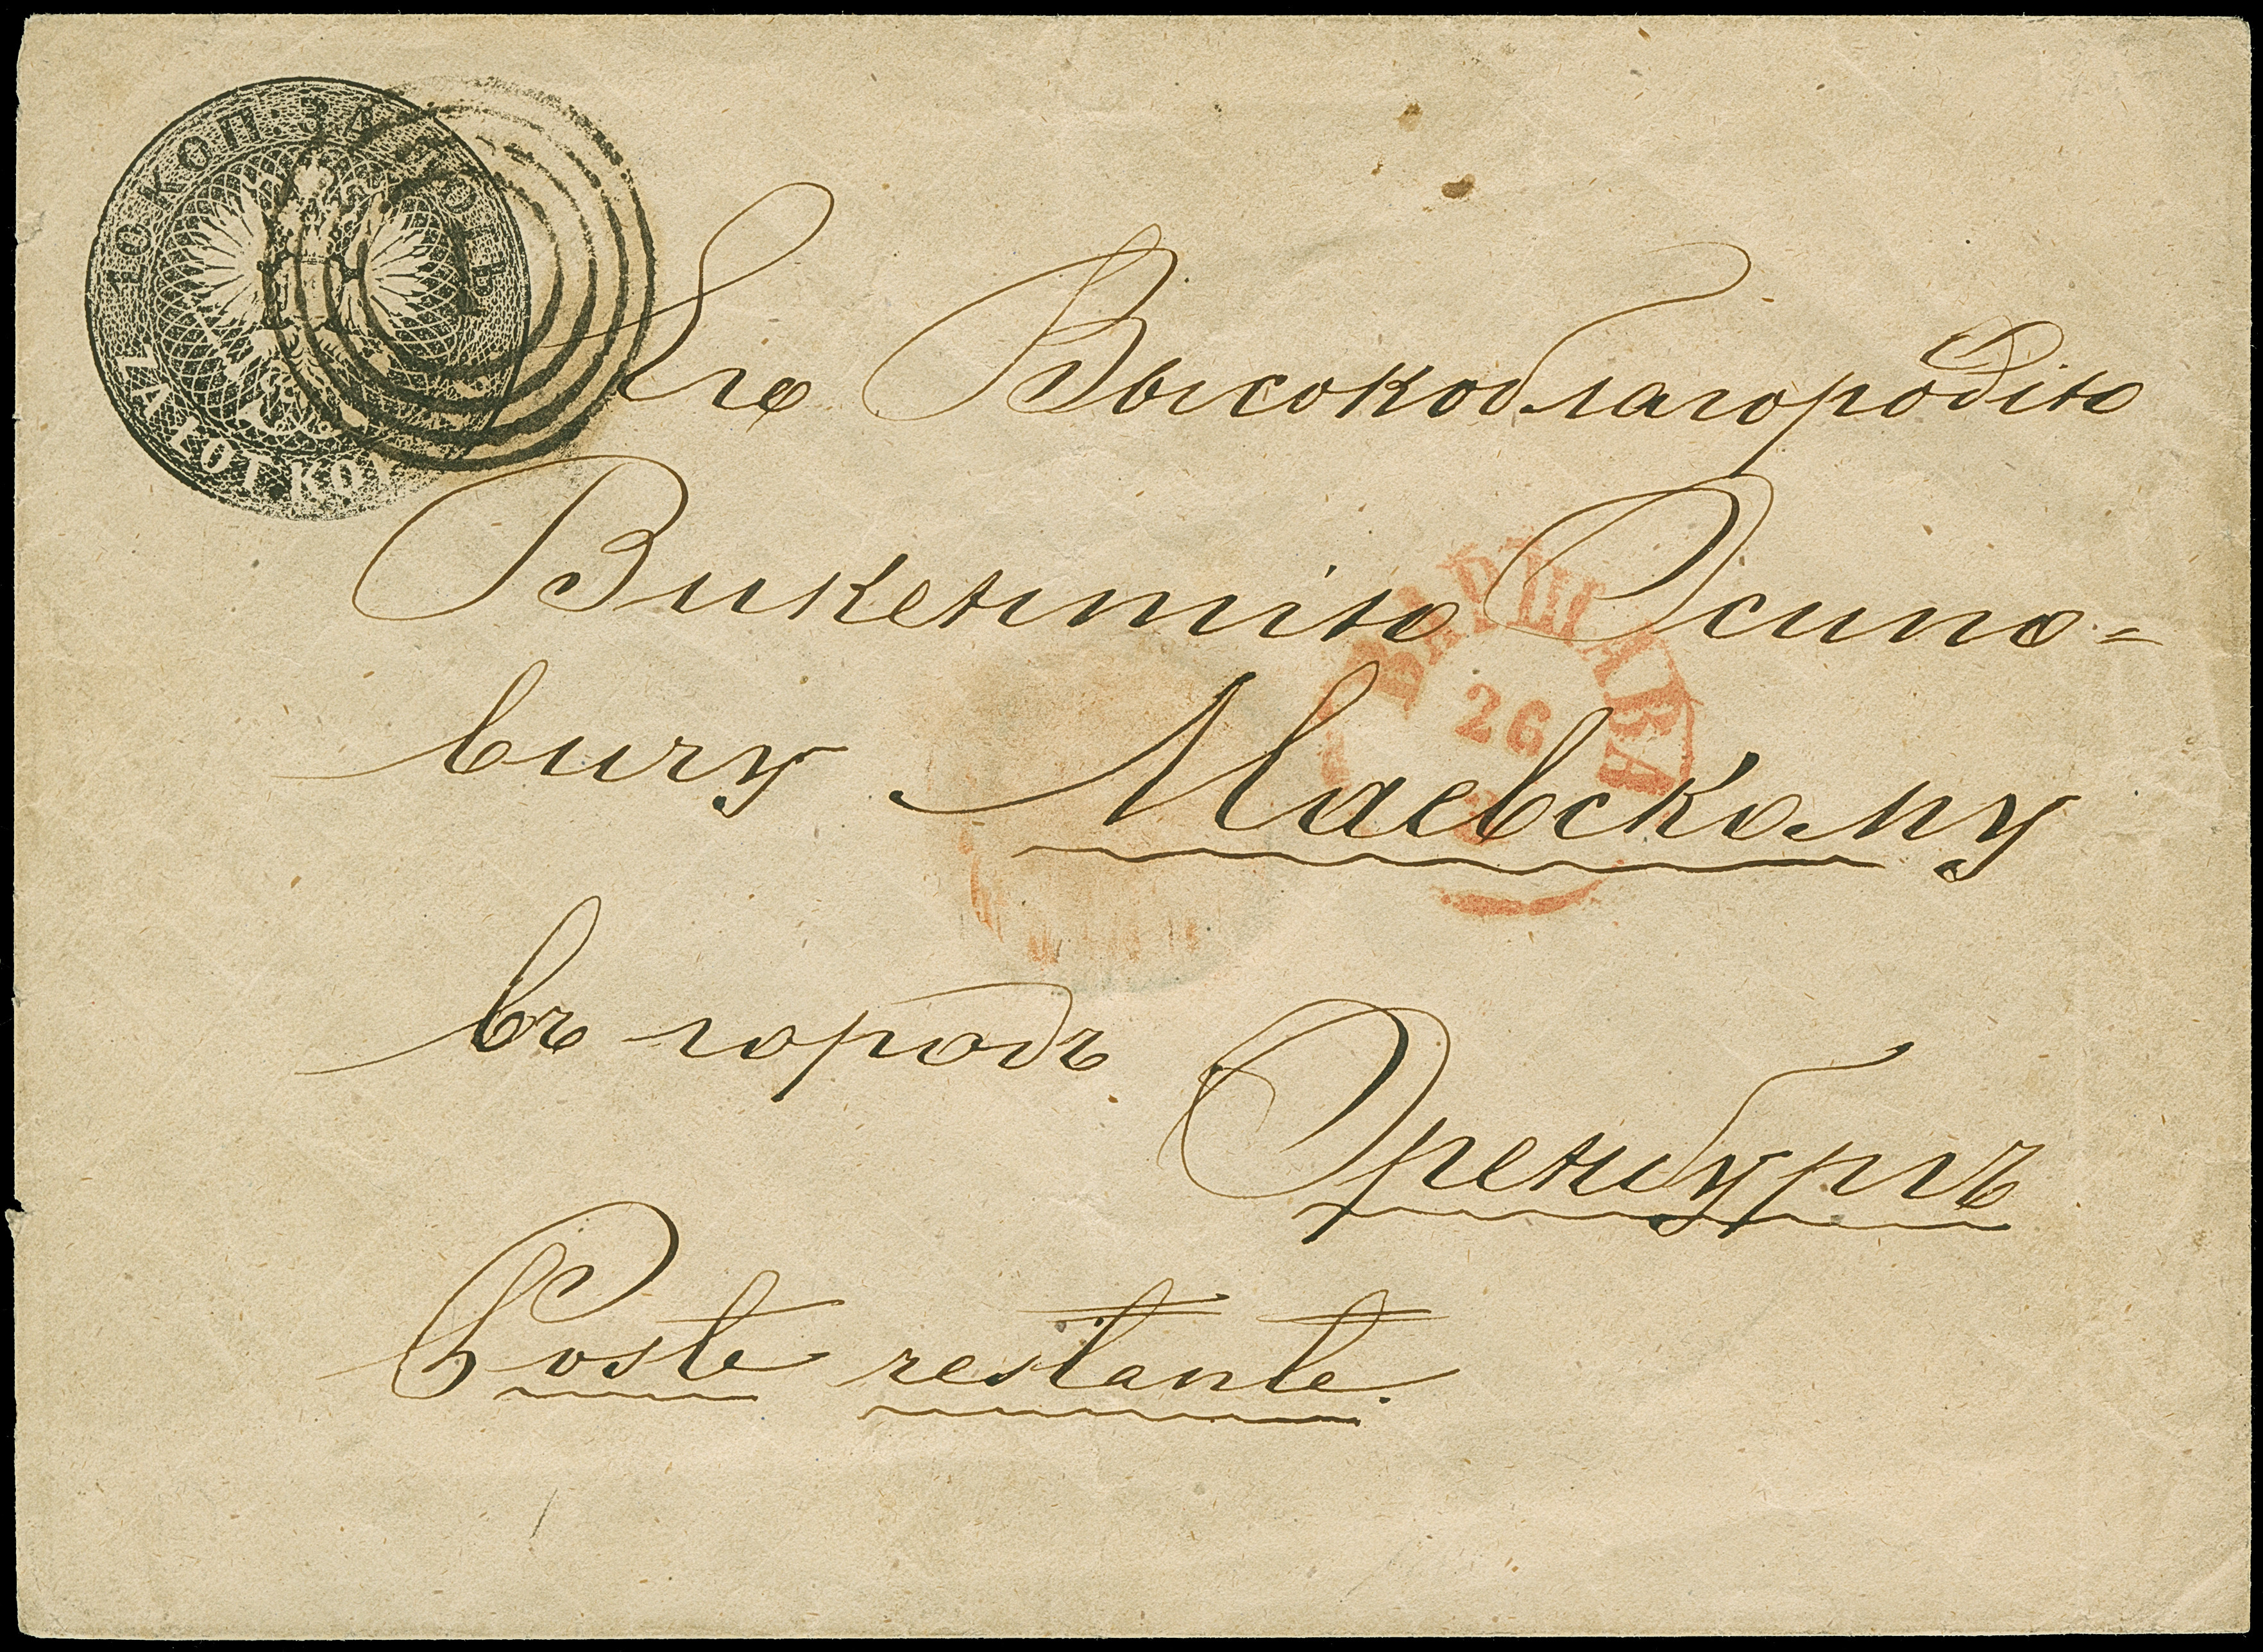 10 КОП. ЗА ЛОТЪ
ZA ŁÓT. KOP
1
Его Высокоблагородію
Викентію Осипо=
вичу Маевскому
ВАРШАВА
26
въ городъ
Оренбургъ
Poste restante.